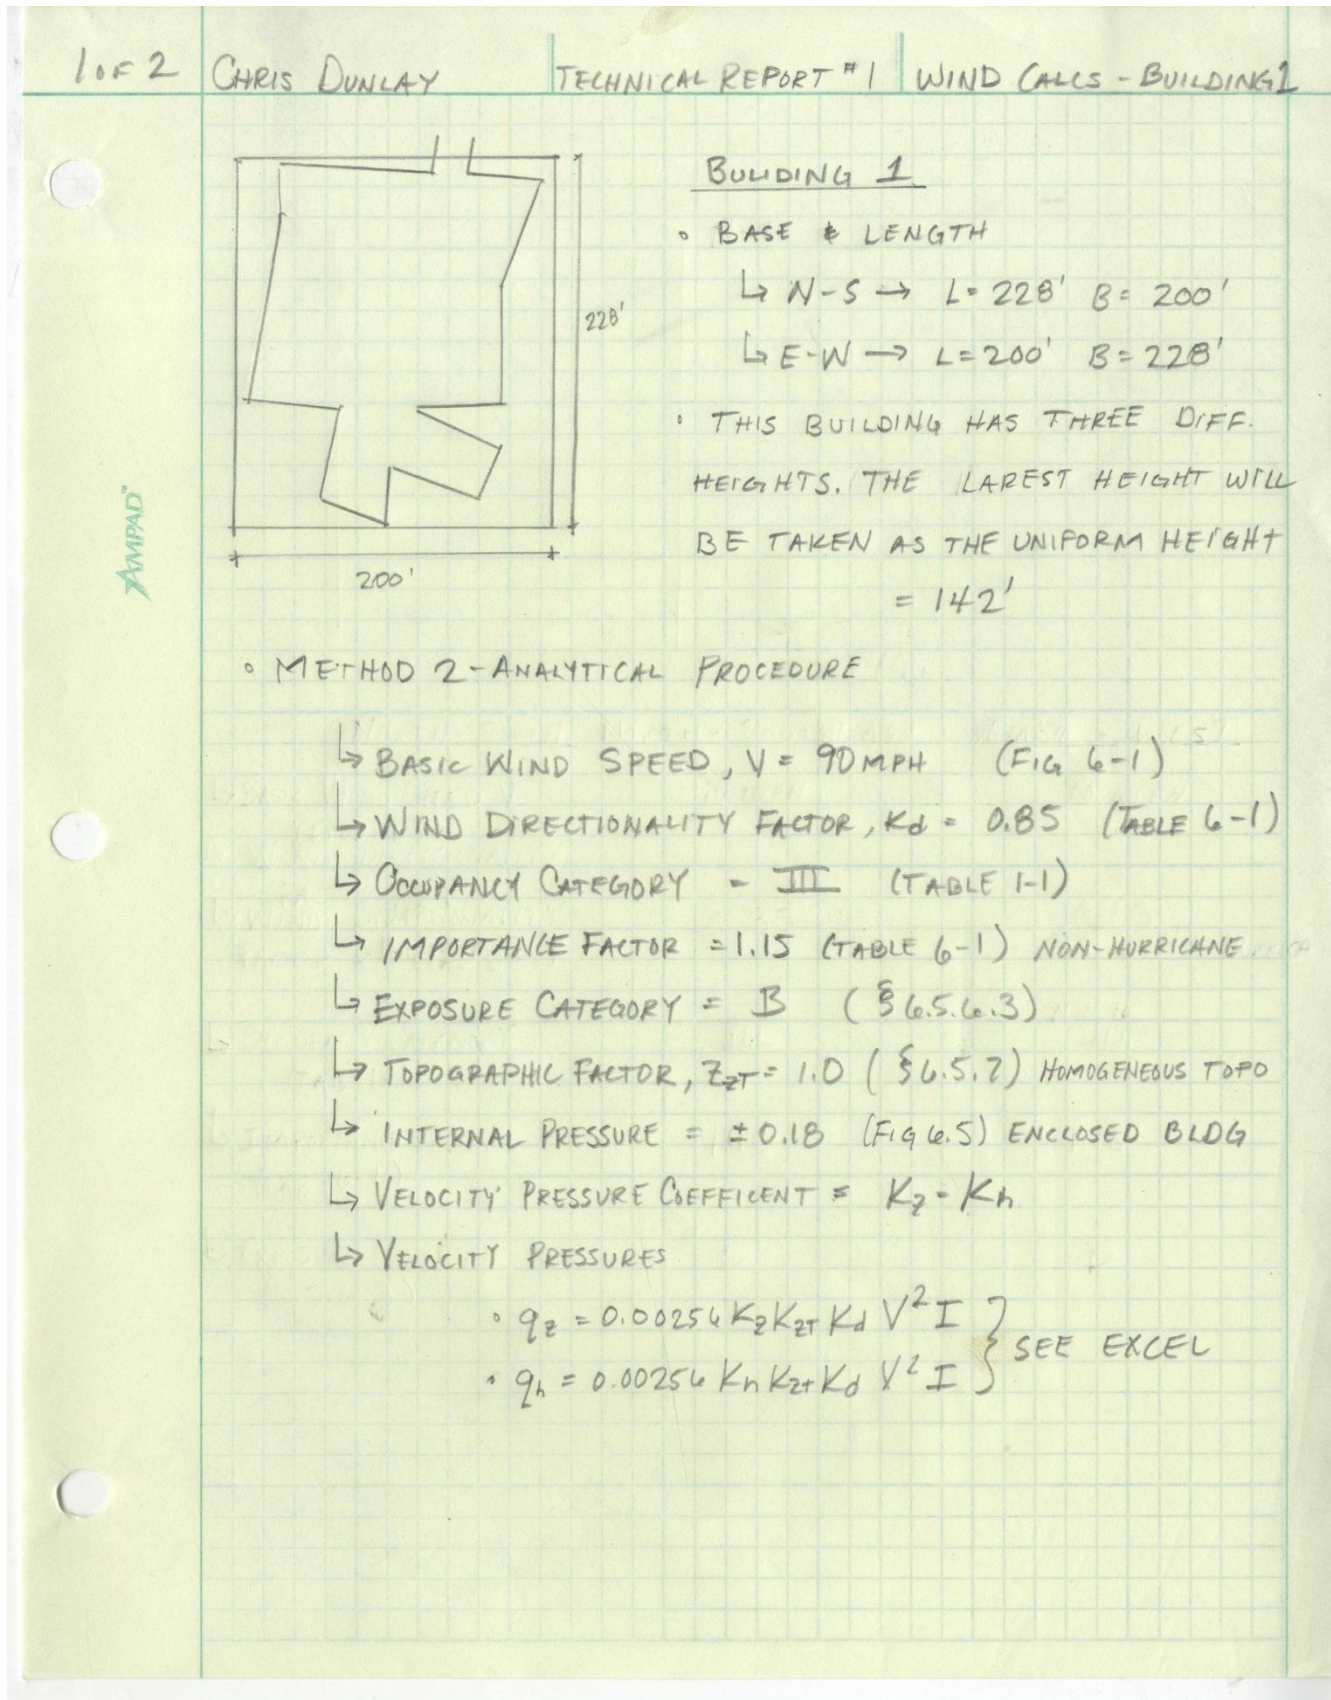 1 OF 2 CHRIS DUNLAY TECHNICAL REPORT #1 WIND CALCS - BUILDING 1
BULIDING 1
• BASE & LENGTH
↳ N-S → L = 228' B = 200'
↳ E-W → L = 200' B = 228'
228'
• THIS BUILDING HAS THREE DIFF.
HEIGHTS. THE LAREST HEIGHT WILL
BE TAKEN AS THE UNIFORM HEIGHT
= 142'
200'
AMPAD™
• METHOD 2 - ANALYTICAL PROCEDURE
↳ BASIC WIND SPEED, V = 90 MPH (FIG 6-1)
↳ WIND DIRECTIONALITY FACTOR, Kd = 0.85 (TABLE 6-1)
↳ OCCUPANCY CATEGORY = III (TABLE 1-1)
↳ IMPORTANCE FACTOR = 1.15 (TABLE 6-1) NON-HURRICANE
↳ EXPOSURE CATEGORY = B (§ 6.5.6.3)
↳ TOPOGRAPHIC FACTOR, ZZT = 1.0 (§ 6.5.7) HOMOGENEOUS TOPO
↳ INTERNAL PRESSURE = ±0.18 (FIG 6.5) ENCLOSED BLDG
↳ VELOCITY PRESSURE COEFFICENT = Kz = Kh
↳ VELOCITY PRESSURES
• qz = 0.00256 Kz KzT Kd V² I
SEE EXCEL
• qh = 0.00256 Kh Kzt Kd V² I